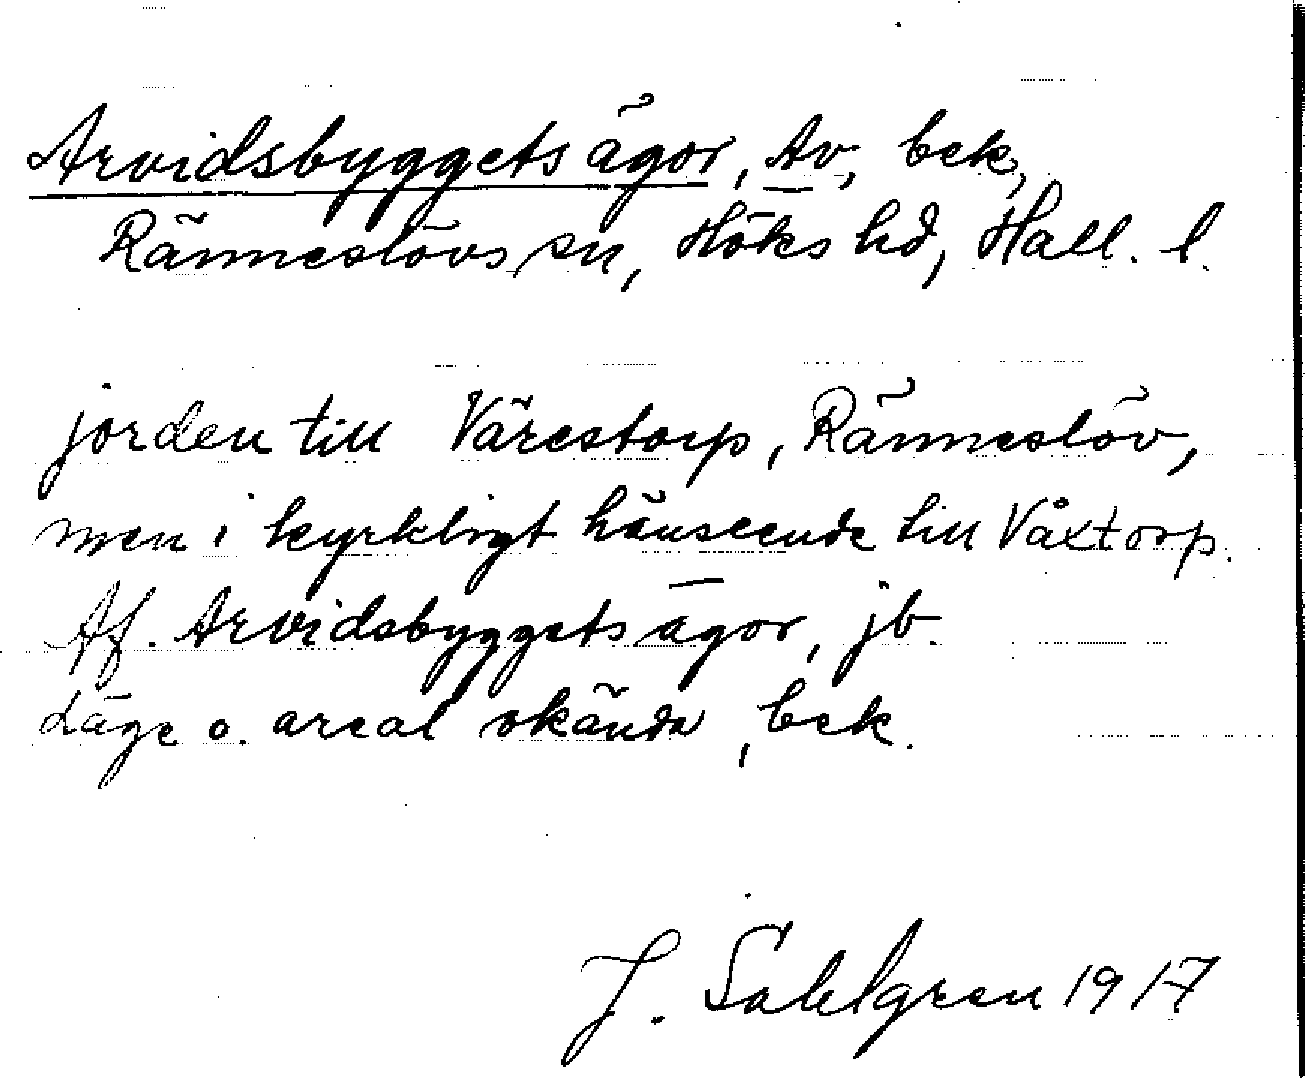 Arvidsbyggets ägor, Av, bek,
Ränneslövs sn, Höks hd, Hall. l.
jorden till Värestorp, Ränneslöv,
men i kyrkligt hänseende till Våxtorp.
Af. Arvidsbyggets ägor, jb.
Läge o. areal okända, bek.
J. Sahlgren 1917